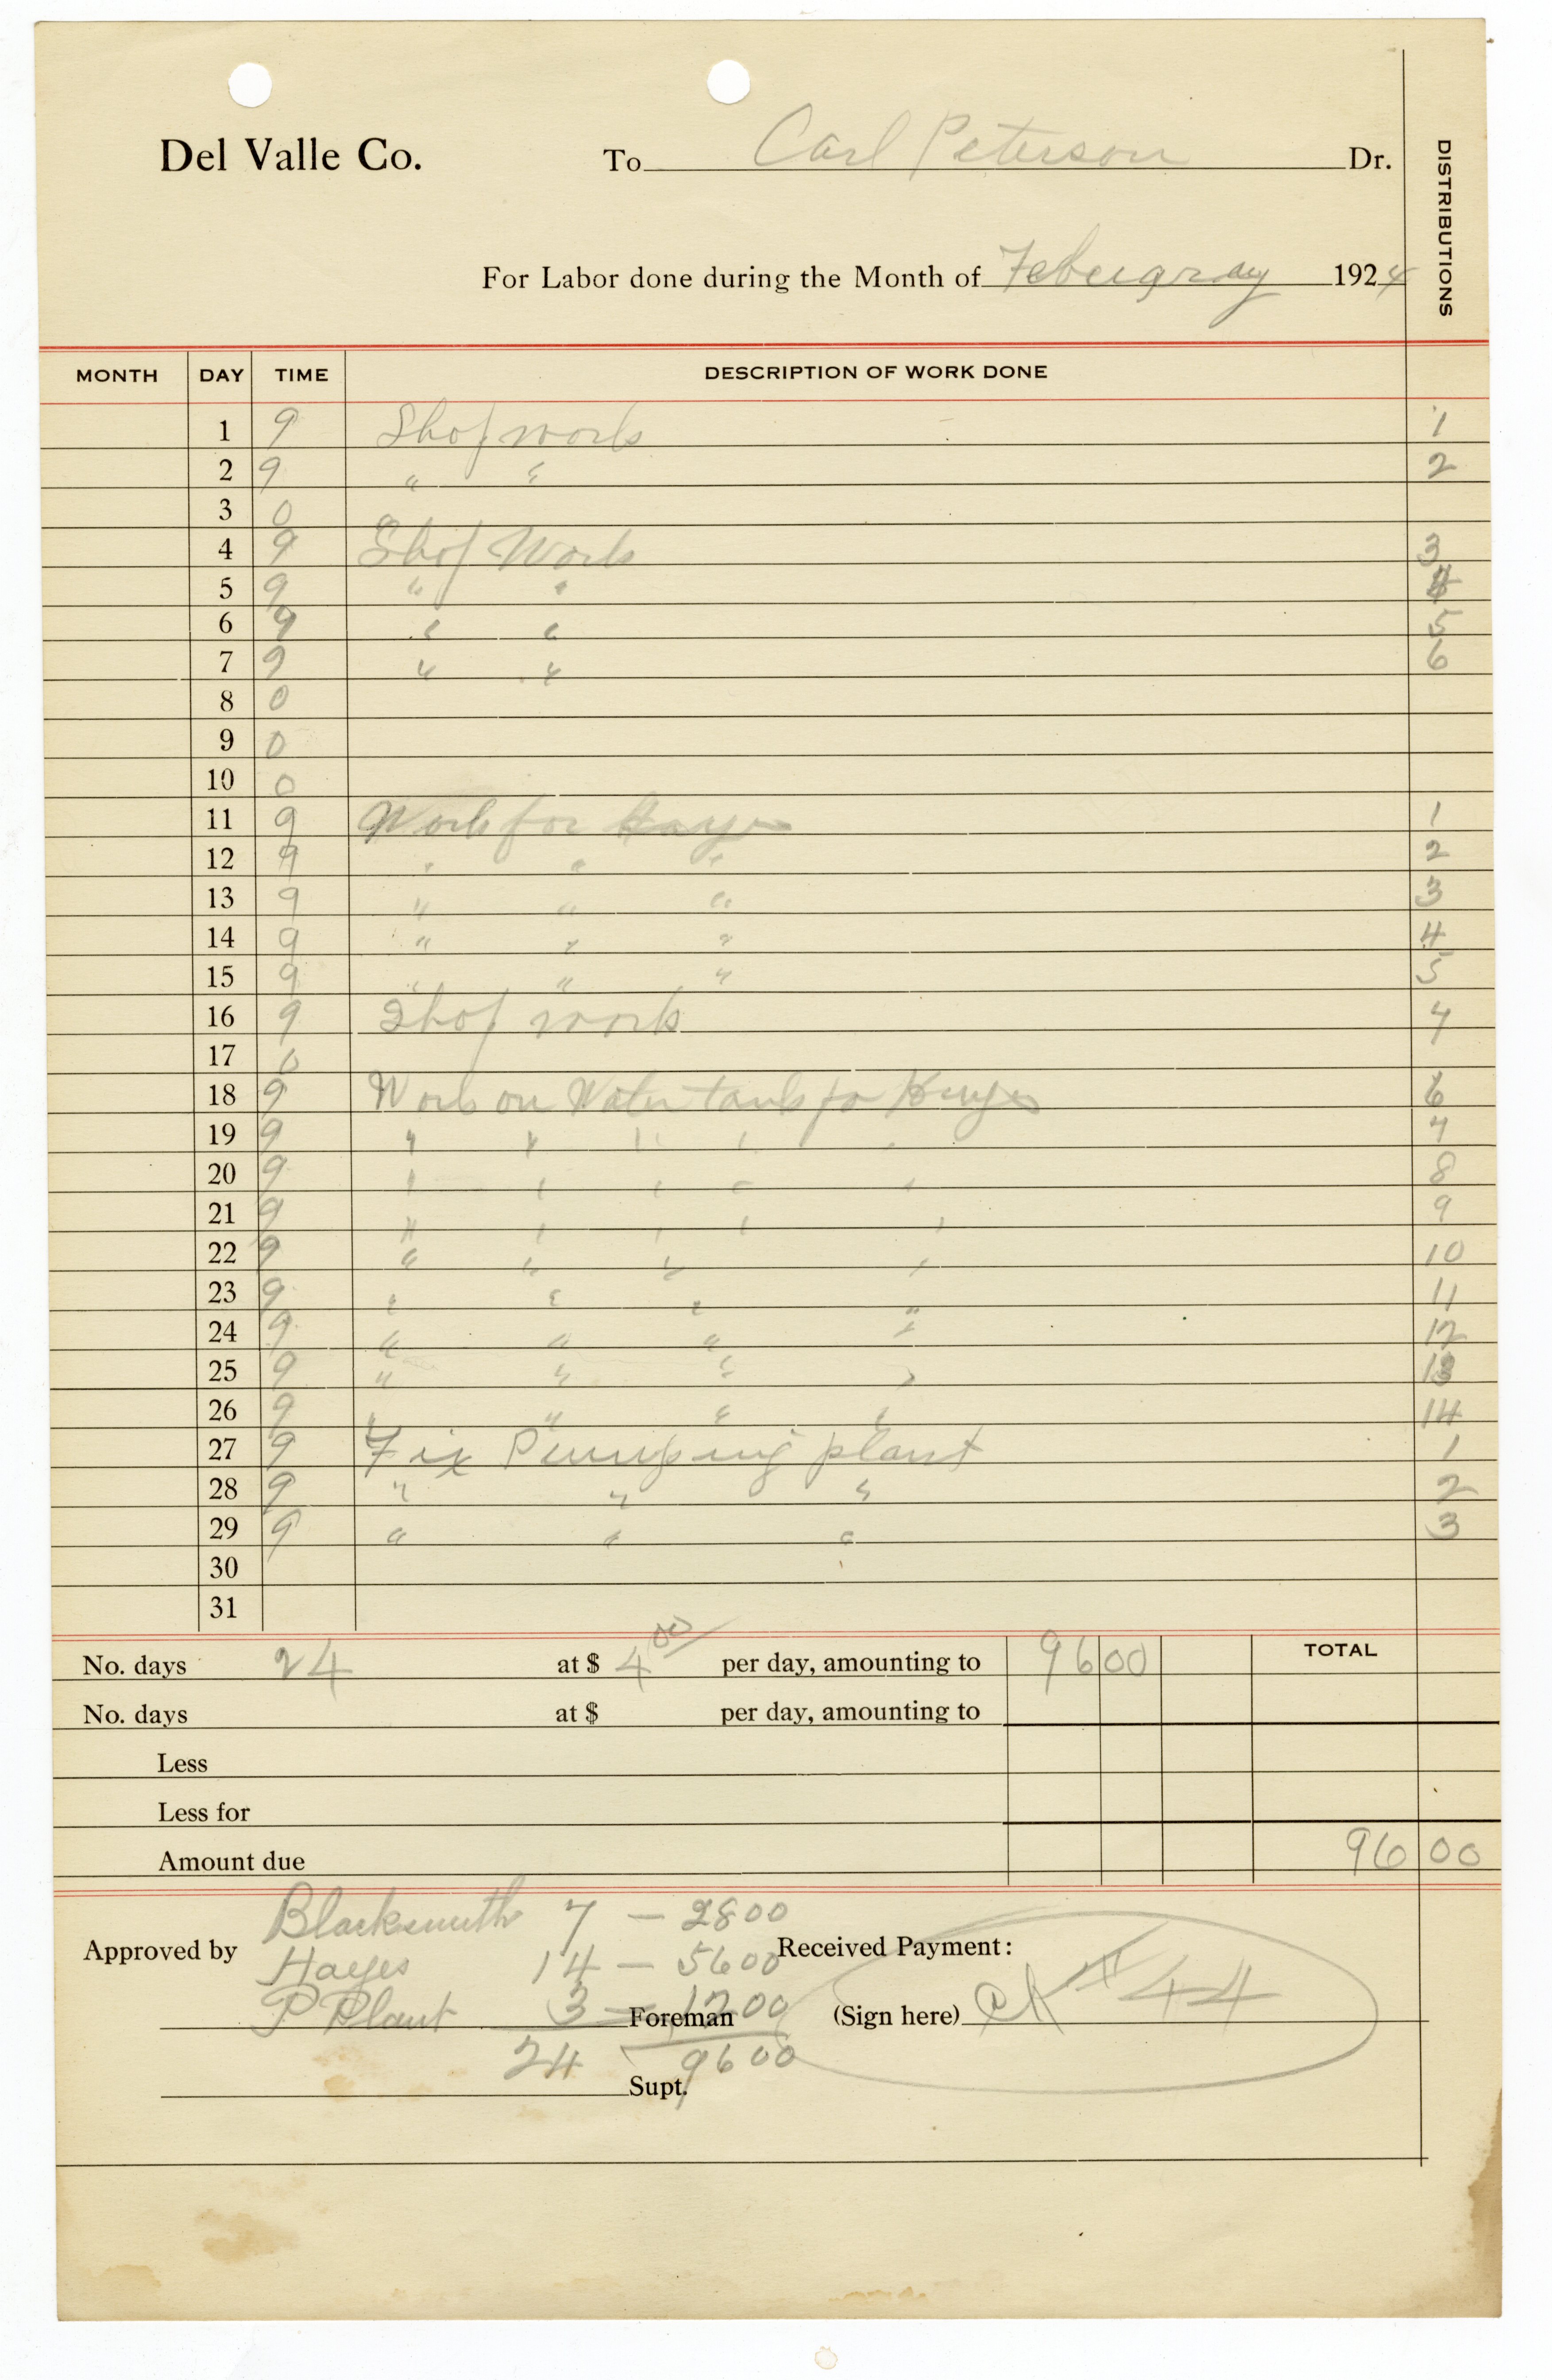 Del Valle Co. To Carl Peterson Dr.
DISTRIBUTIONS
For Labor done during the Month of Febuguray 1924
MONTH DAY TIME DESCRIPTION OF WORK DONE
1 9 Shop work 1
2 9 " " 2
3 0
4 9 Shop Work 3
5 9 " " 4
6 9 " " 5
7 9 " " 6
8 0
9 0
10 0
11 9 Work for Hayes 1
12 9 " " " 2
13 9 " " " 3
14 9 " " " 4
15 9 " " " 5
16 9 Shop work 7
17 0
18 9 Work on Water tank for Hayes 6
19 9 " " " " " 7
20 9 " " " " " 8
21 9 " " " " " 9
22 9 " " " " 10
23 9 " " " " 11
24 9 " " " " 12
25 9 " " " " 13
26 9 " " " " 14
27 9 Fix Pumping plant 1
28 9 " " " 2
29 9 " " " 3
30
31
No. days 24 at $ 4 00 per day, amounting to 96 00 TOTAL
No. days at $ per day, amounting to
Less
Less for
Amount due 96 00
Blacksmith 7 — 28 00
Approved by Hayes 14 — 56 00 Received Payment:
P Plant 3 — 12 00 Foreman (Sign here) Ck # 44
24 96 00
Supt.